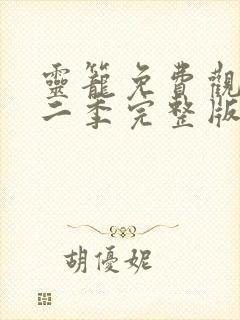 靈籠免費觀
二季完整版
胡優妮